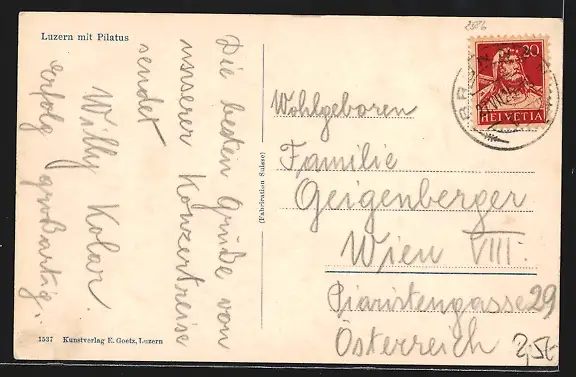 2516
Luzern mit Pilatus
20
HELVETIA
Die besten Grüße von
unserer Konzertreise
sendet
Willy Kolar.
Erfolg großartig.
(Fabrication Suisse)
Wohlgeboren
Familie
Geigenberger
Wien VIII.
Piaristengasse 29
Österreich
1537 Kunstverlag E. Goetz, Luzern